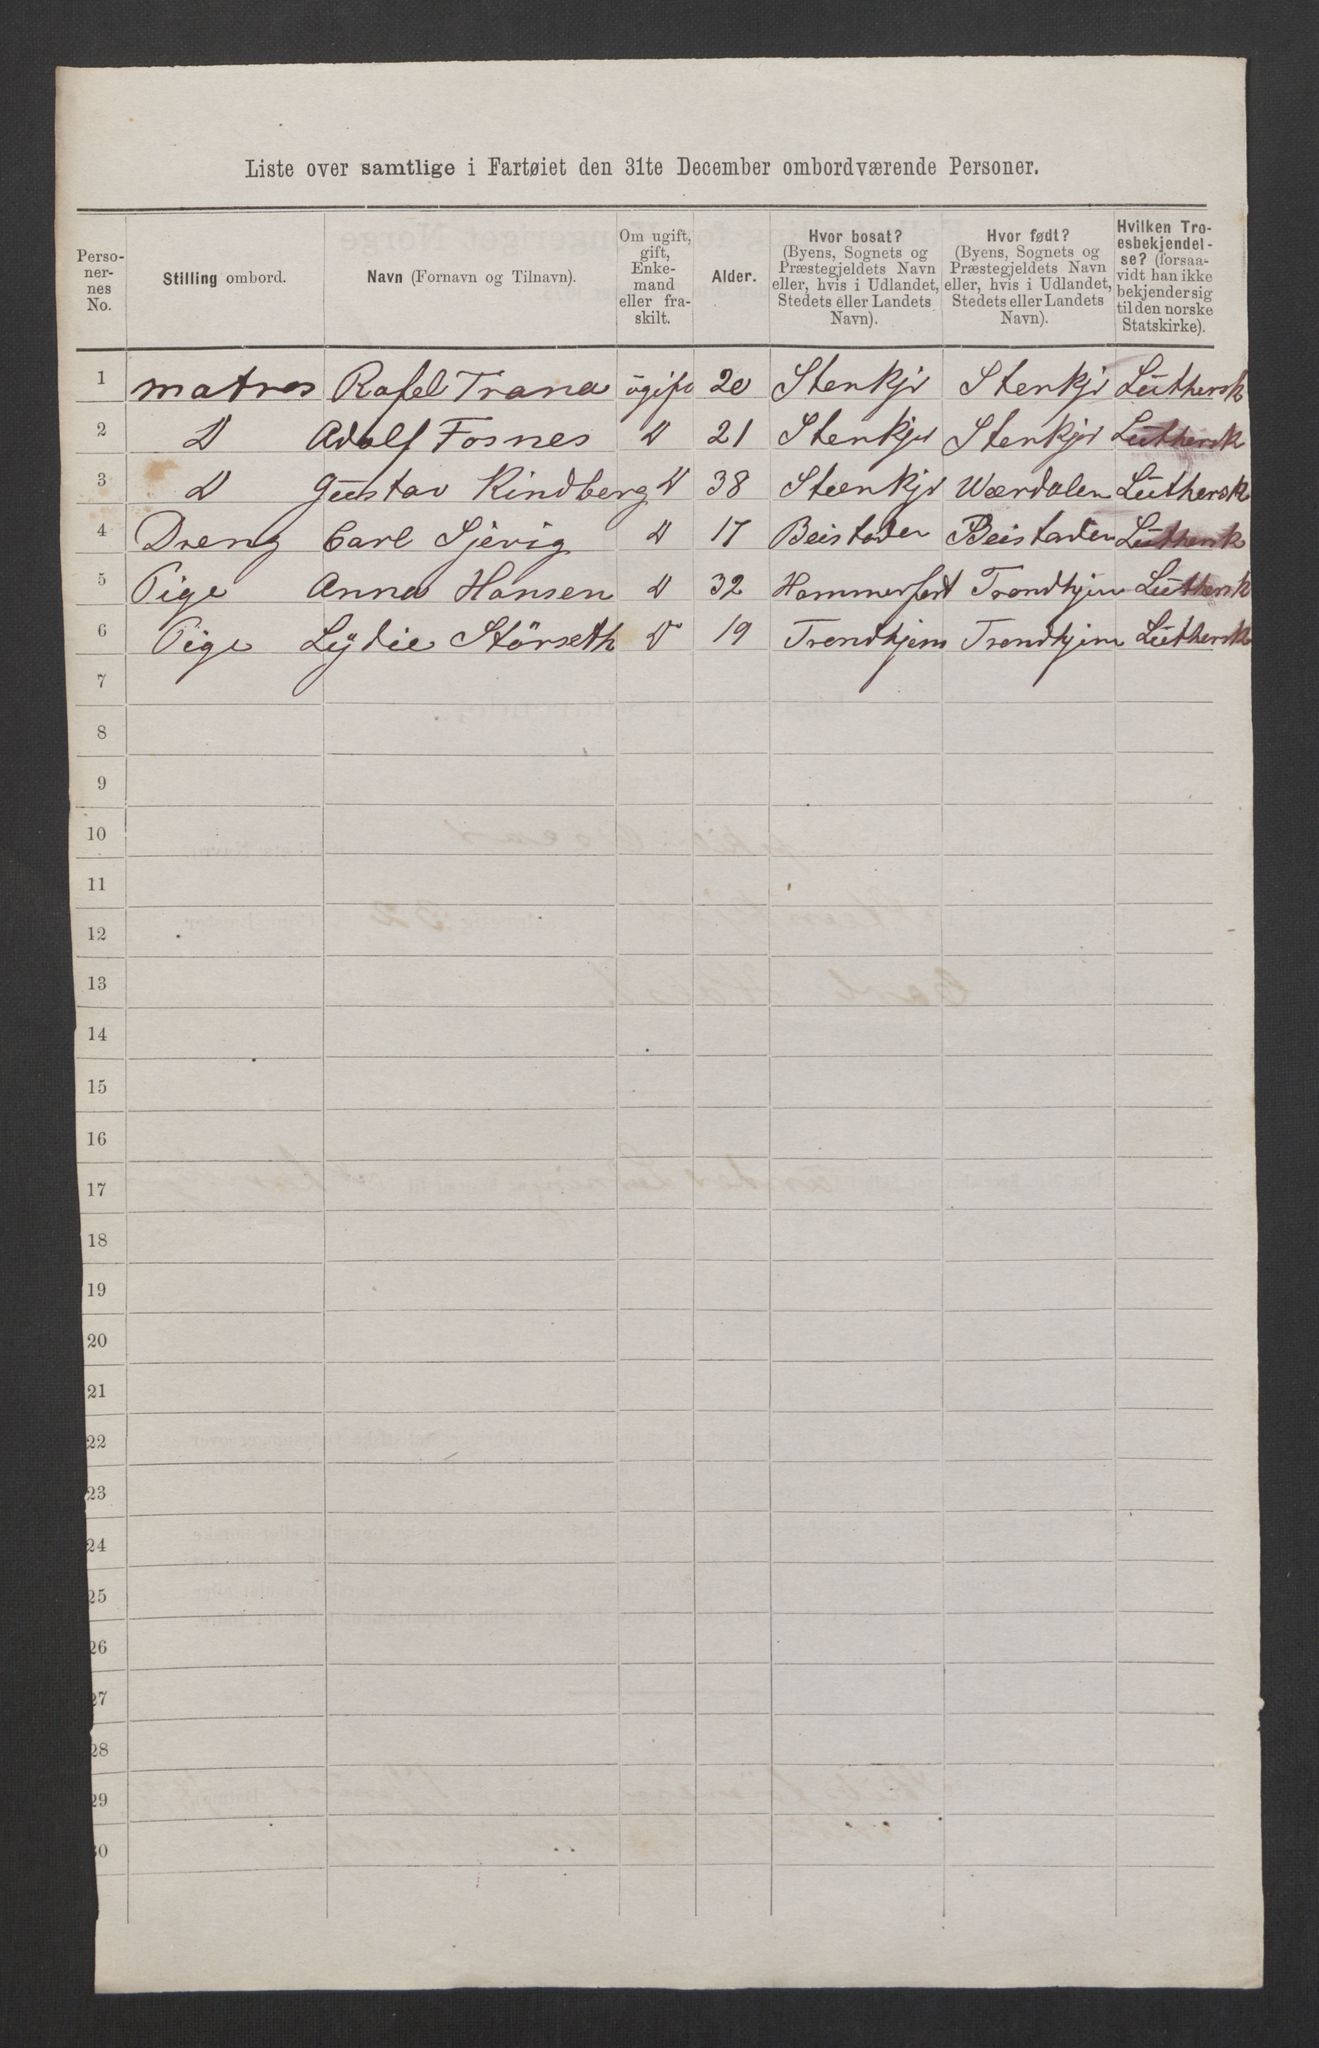 Liste over samtlige i Fartøiet den 31te December ombordværende Personer.
Perso-
ner-
nes
No.
Stilling ombord.
Navn (Fornavn og Tilnavn).
Om ugift,
gift,
Enke-
mand
eller fra-
skilt.
Alder.
Hvor bosat?
(Byens, Sognets og
Præstegjeldets Navn
eller, hvis i Udlandet,
Stedets eller Landets
Navn).
Hvor født?
(Byens, Sognets og
Præstegjeldets Navn
eller, hvis i Udlandet,
Stedets eller Landets
Navn).
Hvilken Tro-
esbekjendel-
se? (forsaa-
vidt han ikke
bekjender sig
til den norske
Statskirke).
1 matros Rafel Trana ugift 20 Stenkjr Stenkjr Luthersk
2 D Adolf Fosnes D 21 Stenkjr Stenkjr Luthersk
3 D Gustav Kindberg D 38 Steenkjr Wærdalen Luthersk
4 Dreng Carl Sjevig D 17 Beistaden Beistaden Luthersk
5 Pige Anna Hansen D 32 Hammerfest Trondhjem Luthersk
6 Pige Lydie Störseth D 19 Trondhjem Trondhjem Luthersk
7
8
9
10
11
12
13
14
15
16
17
18
19
20
21
22
23
24
25
26
27
28
29
30